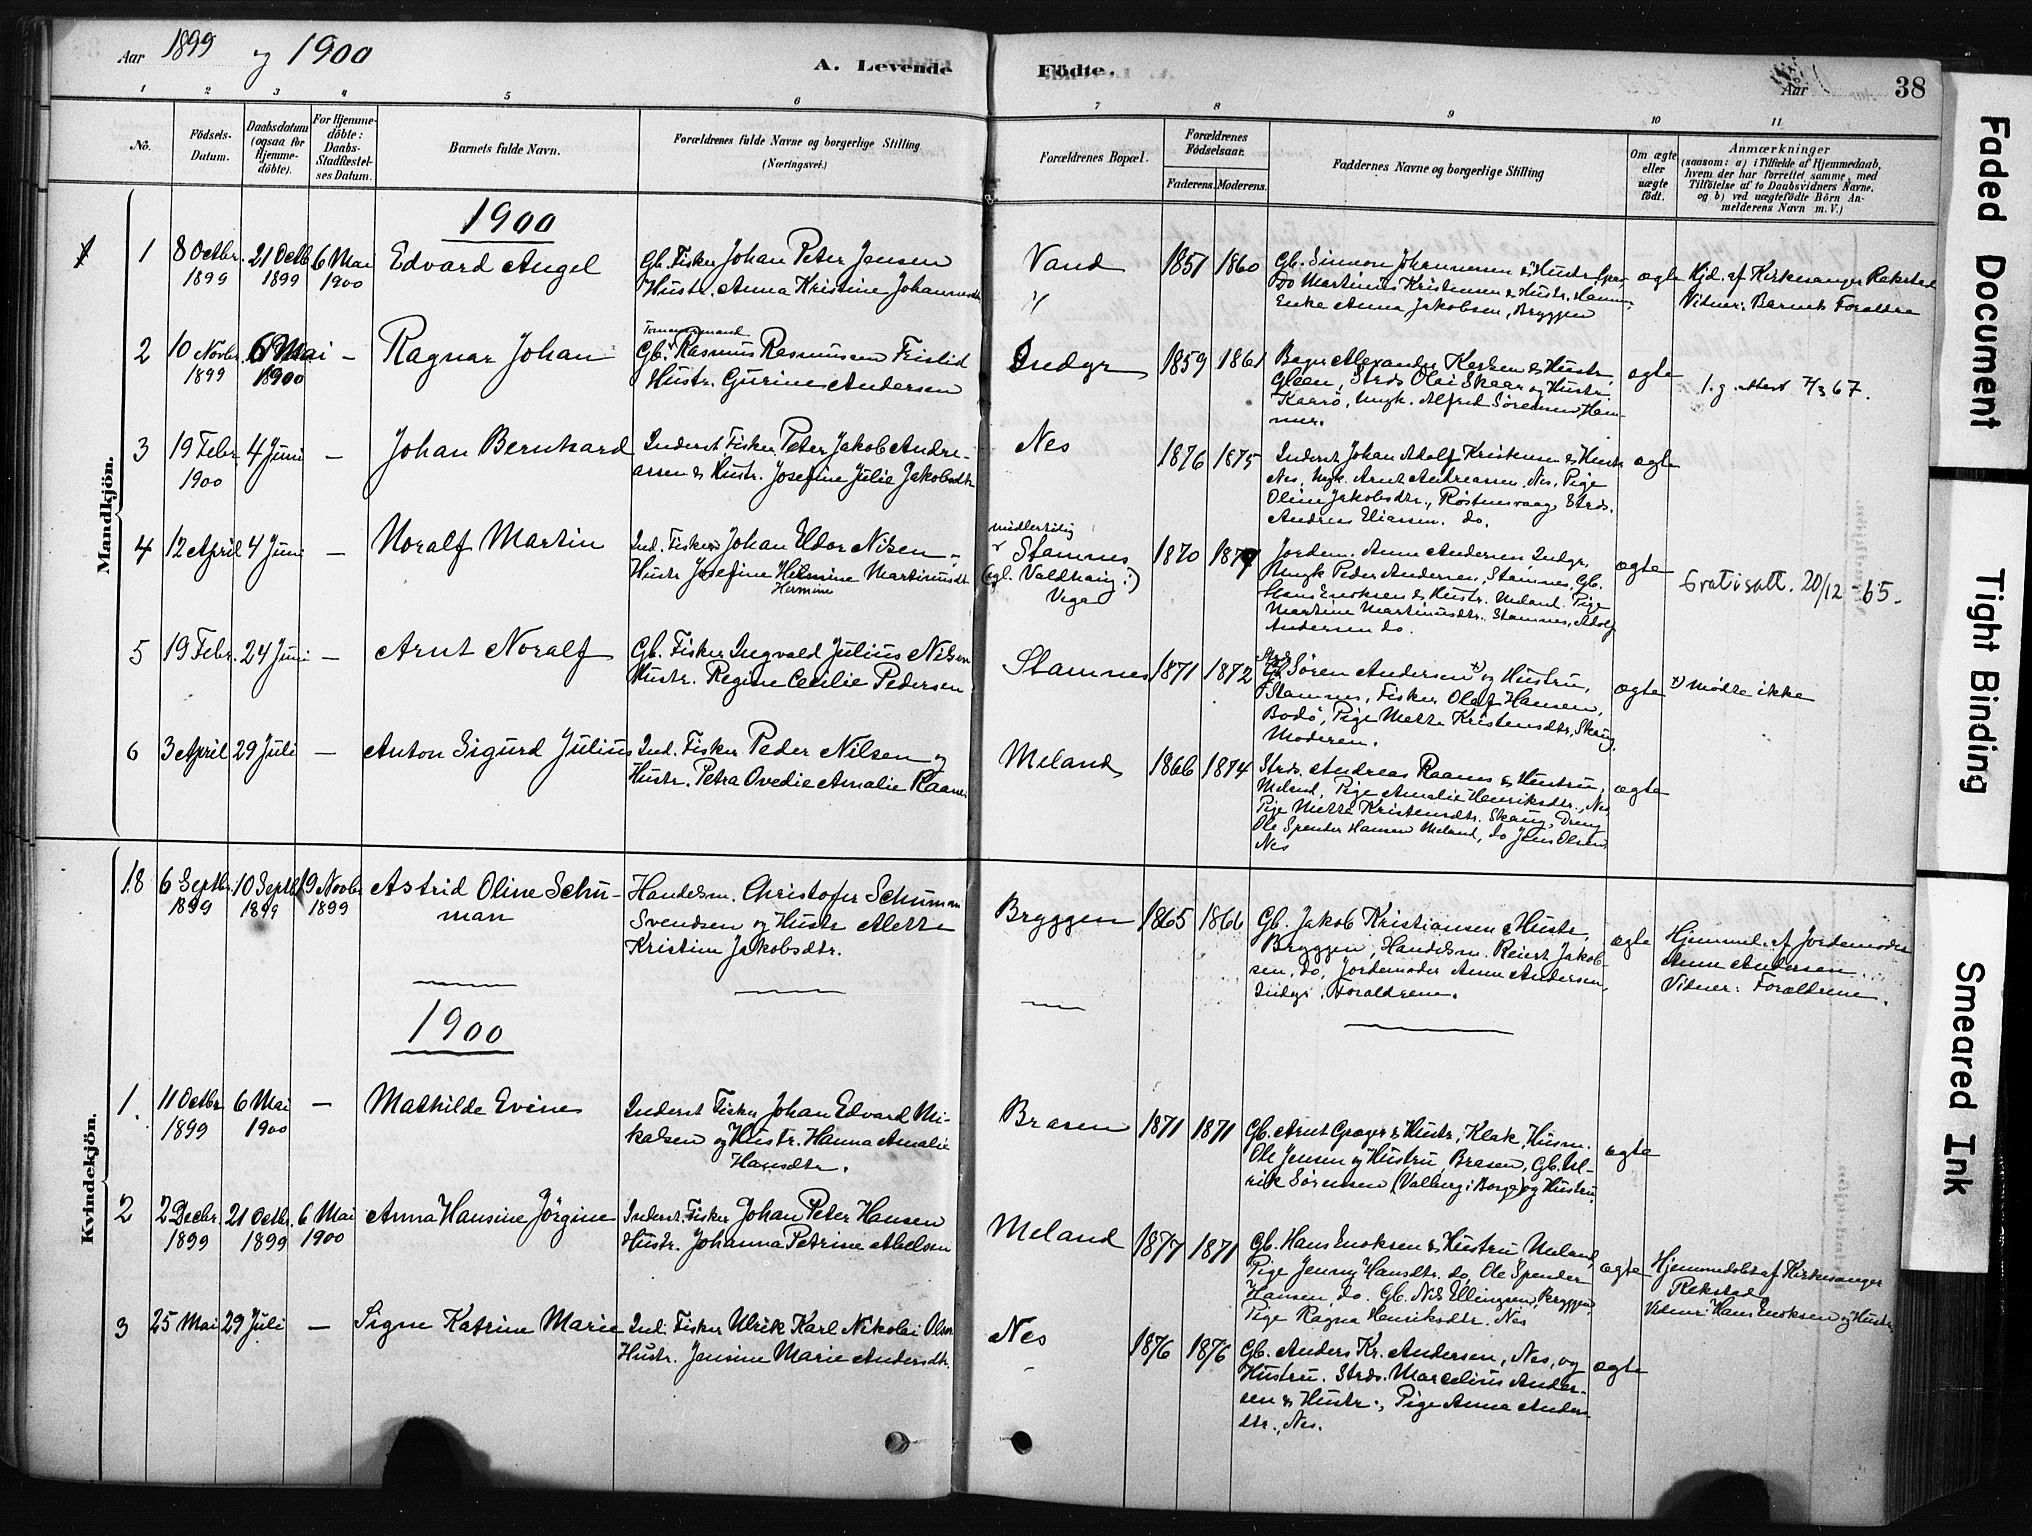 Aar 1899 og 1900
A. Levende Födte.
Aar
38
1 2 3 4 5 6 7 8 9 10 11
No.
Födsels-Datum.
Daabsdatum (ogsaa for Hjemmedöbte).
For Hjemmedöbte: Daabs-Stadfæstelses Datum.
Barnets fulde Navn.
Forældrenes fulde Navne og borgerlige Stilling (Næringsvei.)
Forældrenes Bopæl.
Forældrenes Födselsaar.
Faderens. Moderens.
Faddernes Navne og borgerlige Stilling
Om ægte eller uægte födt.
Anmærkninger
(saasom: a) i Tilfælde af Hjemmedaab,
hvem der har forrettet samme, med
Tilföielse af to Daabsvidners Navne,
og b) ved uægtefödte Börn Anmelderens Navn m. V.)
Mandkjön.
1900
1 8 Octbr. 1899 21 Octb. 1899 6 Mai 1900
Edvard Angel
Gb. Fisker Johan Peter Jensen
Hustr. Anna Kristine Johannesdtr
Vand
1851 1860
Gb. Simon Johannesen & Hustr.
Do Martinus Kristensen & Hustr.
Enke Anna Jakobsen, Bryggen
ægte
Hjd. af Kirkesanger Rekstad
Vidner: Barnets Forældre
2 10 Novbr. 1899 6 Mai 1900 —
Ragnar Johan
Gb. Rasmus Rasmusen Fristid
Hustr. Gurine Andersen
Indyr
1859 1861
Hustr.
Gleen, Strds. Olai Skaar og Hustr.
Kaarö, Ungk. Alfred Sörensen
ægte
1. g. attest 7/3 67.
3 19 Febr. 1900 4 Juni —
Johan Bernhard
Inderst Fisker Peter Jakob Andreassen & Hustr. Josefine Julie Jakobsdtr
Nes
1876 1875
Inderst Johan Adolf Kristensen & Hustr.
Nes, Ungk. Arnt Andreassen, Nes, Pige
Oline Jakobsdtr., Röstensvaag, Strds.
Andreas Eliassen. do.
ægte
4 12 April 4 Juni —
Noralf Martin
Ind. Fisker Johan Eldor Nilsen
Hustr Josefine Hermine Martinusdtr
Hermine
midlertidig
Stamnes
Vega
1870 1879
Jordem. Anne Andersen, Indyr,
Ungk Peder Andersen, Stamnes, Gb.
Hans Enoksen & Hustr. Meland. Pige
Martine Martinusdtr. Stamnes, Adolf
Andersen do.
ægte
Gratisatt. 20/12 -65.
5 19 Febr. 24 Juni —
Arnt Noralf
Gb. Fisker Ingvald Julius Nilsen
Hustr. Regine Cecilie Pedersen
Stamnes
1871 1872
Sören Andersen x) og Hustru,
Stamnes, Fisker Olaf Hansen,
Bodö, Pige Mette Kristensdtr, Skaug,
Moderen.
ægte
x) Mödte ikke
6 3 April 29 Juli —
Anton Sigurd Julius
Ind. Fisker Peder Nilsen og
Hustr. Petra Ovedie Amalie Raanes
Meland
1866 1874
Strds. Andreas Raanes & Hustru,
Meland, Pige Amalie Henriksdtr., Nes,
Pige Mette Kristensdtr. Skaug, Dreng
Ole Spender Hansen Meland, do Jens Olsen,
Nes
ægte
Kvindekjön.
18 6 Septbr. 1899 10 Septb. 1899 19 Novbr. 1899
Astrid Oline Schuman
Handelsm. Christofer Schuman
Svendsen og Hustr Alette
Kristine Jakobsdtr.
Bryggen
1865 1866
Gb. Jakob Kristiansen & Hustr,
Bryggen, Handelsm. Reiert Jakobsen, do, Jordemoder Anne Andersen,
Indyr. Forældrene.
ægte
Hjemmed. af Jordemoder
Anne Andersen
Vidner: Forældrene.
1900
1. 11 Octbr. 1899 6 Mai 1900 —
Mathilde Evine
Inderst Fisker Johan Edvard Mikalsen og Hustr. Hanna Amalie
Hansdtr.
Brasen
1871 1871
Gb. Arnt Grøger & Hustr, Klæk, Husm.
Ole Jensen og Hustru, Brasen, Gb. Ulrik Sörensen (Valberg i Borge) og Hustru.
ægte
2 2 Decbr. 1899 21 Octb. 1899 6 Mai 1900
Anna Hansine Jörgine
Inderst. Fisker Johan Peter Hansen
Hustr. Johanna Petrine Abelsen
Meland
1877 1871
Gb. Hans Enoksen & Hustru, Meland,
Pige Jenny Hansdtr. do, Ole Spender
Hansen, do. Gb. Nils Ellingsen, Bryggen,
Pige Ragna Henriksdtr. Nes
ægte
Hjemmedöbt af Kirkesanger
Rekstad
Vidner: Hans Enoksen og Hustr.
3 25 Mai 29 Juli —
Signe Katrine Marie
Ind. Fisker Ulrik Karl Nikolai Olsen
Hustr. Jensine Marie Andersdtr.
Nes
1876 1876
Gb. Anders Kr. Andersen, Nes, og
Hustru. Strds. Marcelius Andersen & Hustr., Pige Anna Andersdtr., Nes.
ægte
Faded Document
Tight Binding
Smeared Ink